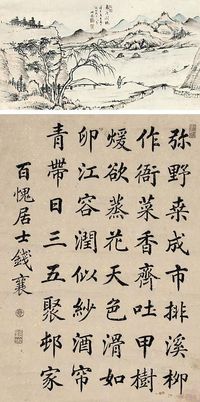 弥野桑成市排溪柳
作衙菜香齊吐甲樹
煖欲蒸花天色滑如
卯江容潤似紗酒帘
青帶日三五聚邨家
百愧居士錢襄